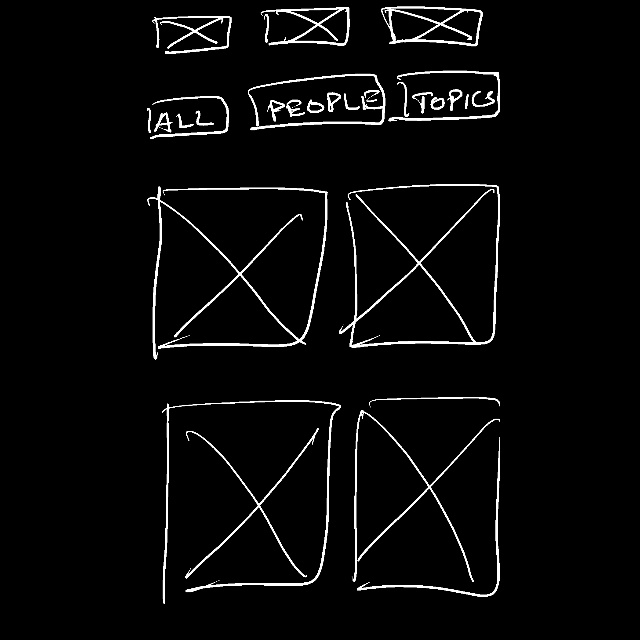 ALL PEOPLE TOPICS